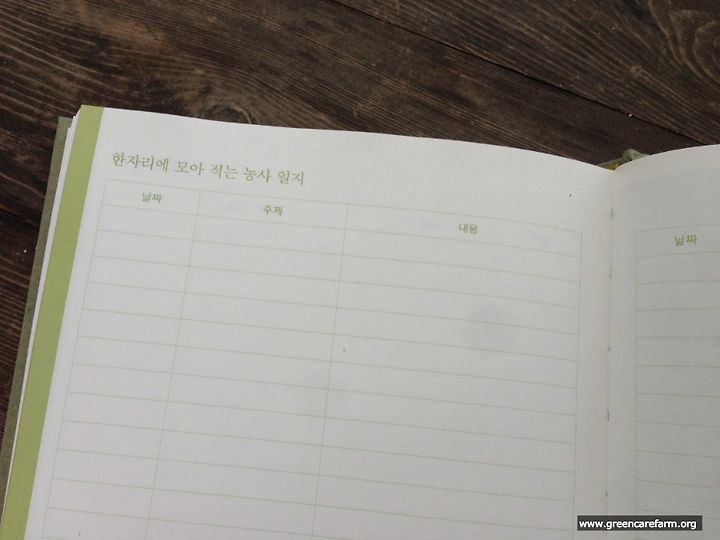 한자리에 모아 적는 농사 일지
날짜 주제 내용
날짜
www.greencarefarm.org